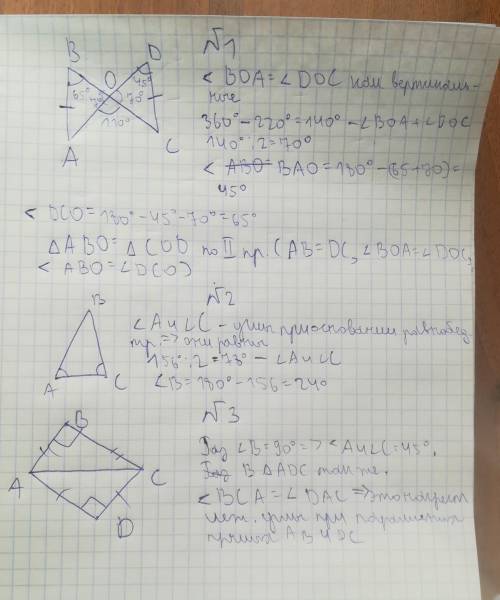 N1
B D
O 45°
65° 70° 70°
110°
A C
< BOA = ∠DOC как вертикаль-
ные
360° - 220° = 140° - ∠BOA + ∠DOC
140° : 2 = 70°
< ABO = BAO = 180° - (65 + 70) =
45°
< DCO = 180° - 45° - 70° = 65°
△ABO = △COD по II пр. (AB = DC, ∠BOA = ∠DOC,
< ABO = ∠DCO)
N2
B
A C
∠A и ∠C - углы при основании равнобед.
тр. => они равны
156° : 2 = 78° - ∠A и ∠C
∠B = 180° - 156 = 24°
N3
B
A C
D
Раз ∠B = 90° => < A и ∠C = 45°.
В △ADC так же.
< BCA = ∠DAC => это
углы при
AB и DC